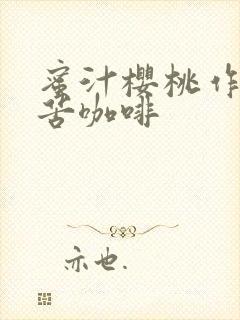 蜜汁樱桃作
苦咖啡
亦也.